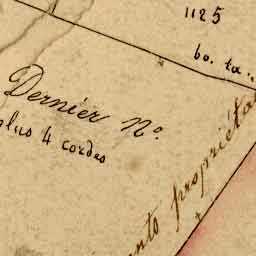 1125
bo. ta.
Dernier No.
plus 4 cordes
ento propriéta